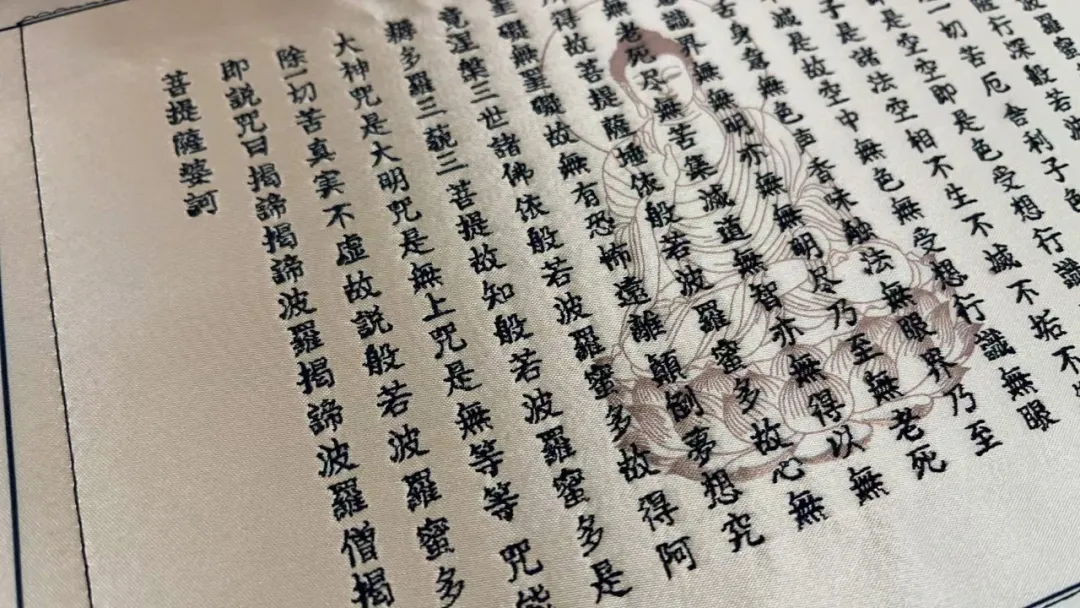 波羅蜜
薩行深般若波
一切苦厄舍利子色
是空空即是色受想行識
子是諸法空相不生不滅不垢不
滅是故空中無色無受想行識無眼
舌身意無色声香味触法無眼界乃至
意識界無無明亦無無明尽乃至無老死
無老死尽無苦集滅道無智亦無得以無
所得故菩提薩埵依般若波羅蜜多故心無
罣礙無罣礙故無有恐怖遠離顛倒夢想究
竟涅槃三世諸佛依般若波羅蜜多故得阿
耨多羅三藐三菩提故知般若波羅蜜多是
大神咒是大明咒是無上咒是無等等咒能
除一切苦真実不虚故説般若波羅蜜多
即説咒曰揭諦揭諦波羅揭諦波羅僧揭
菩提薩婆訶